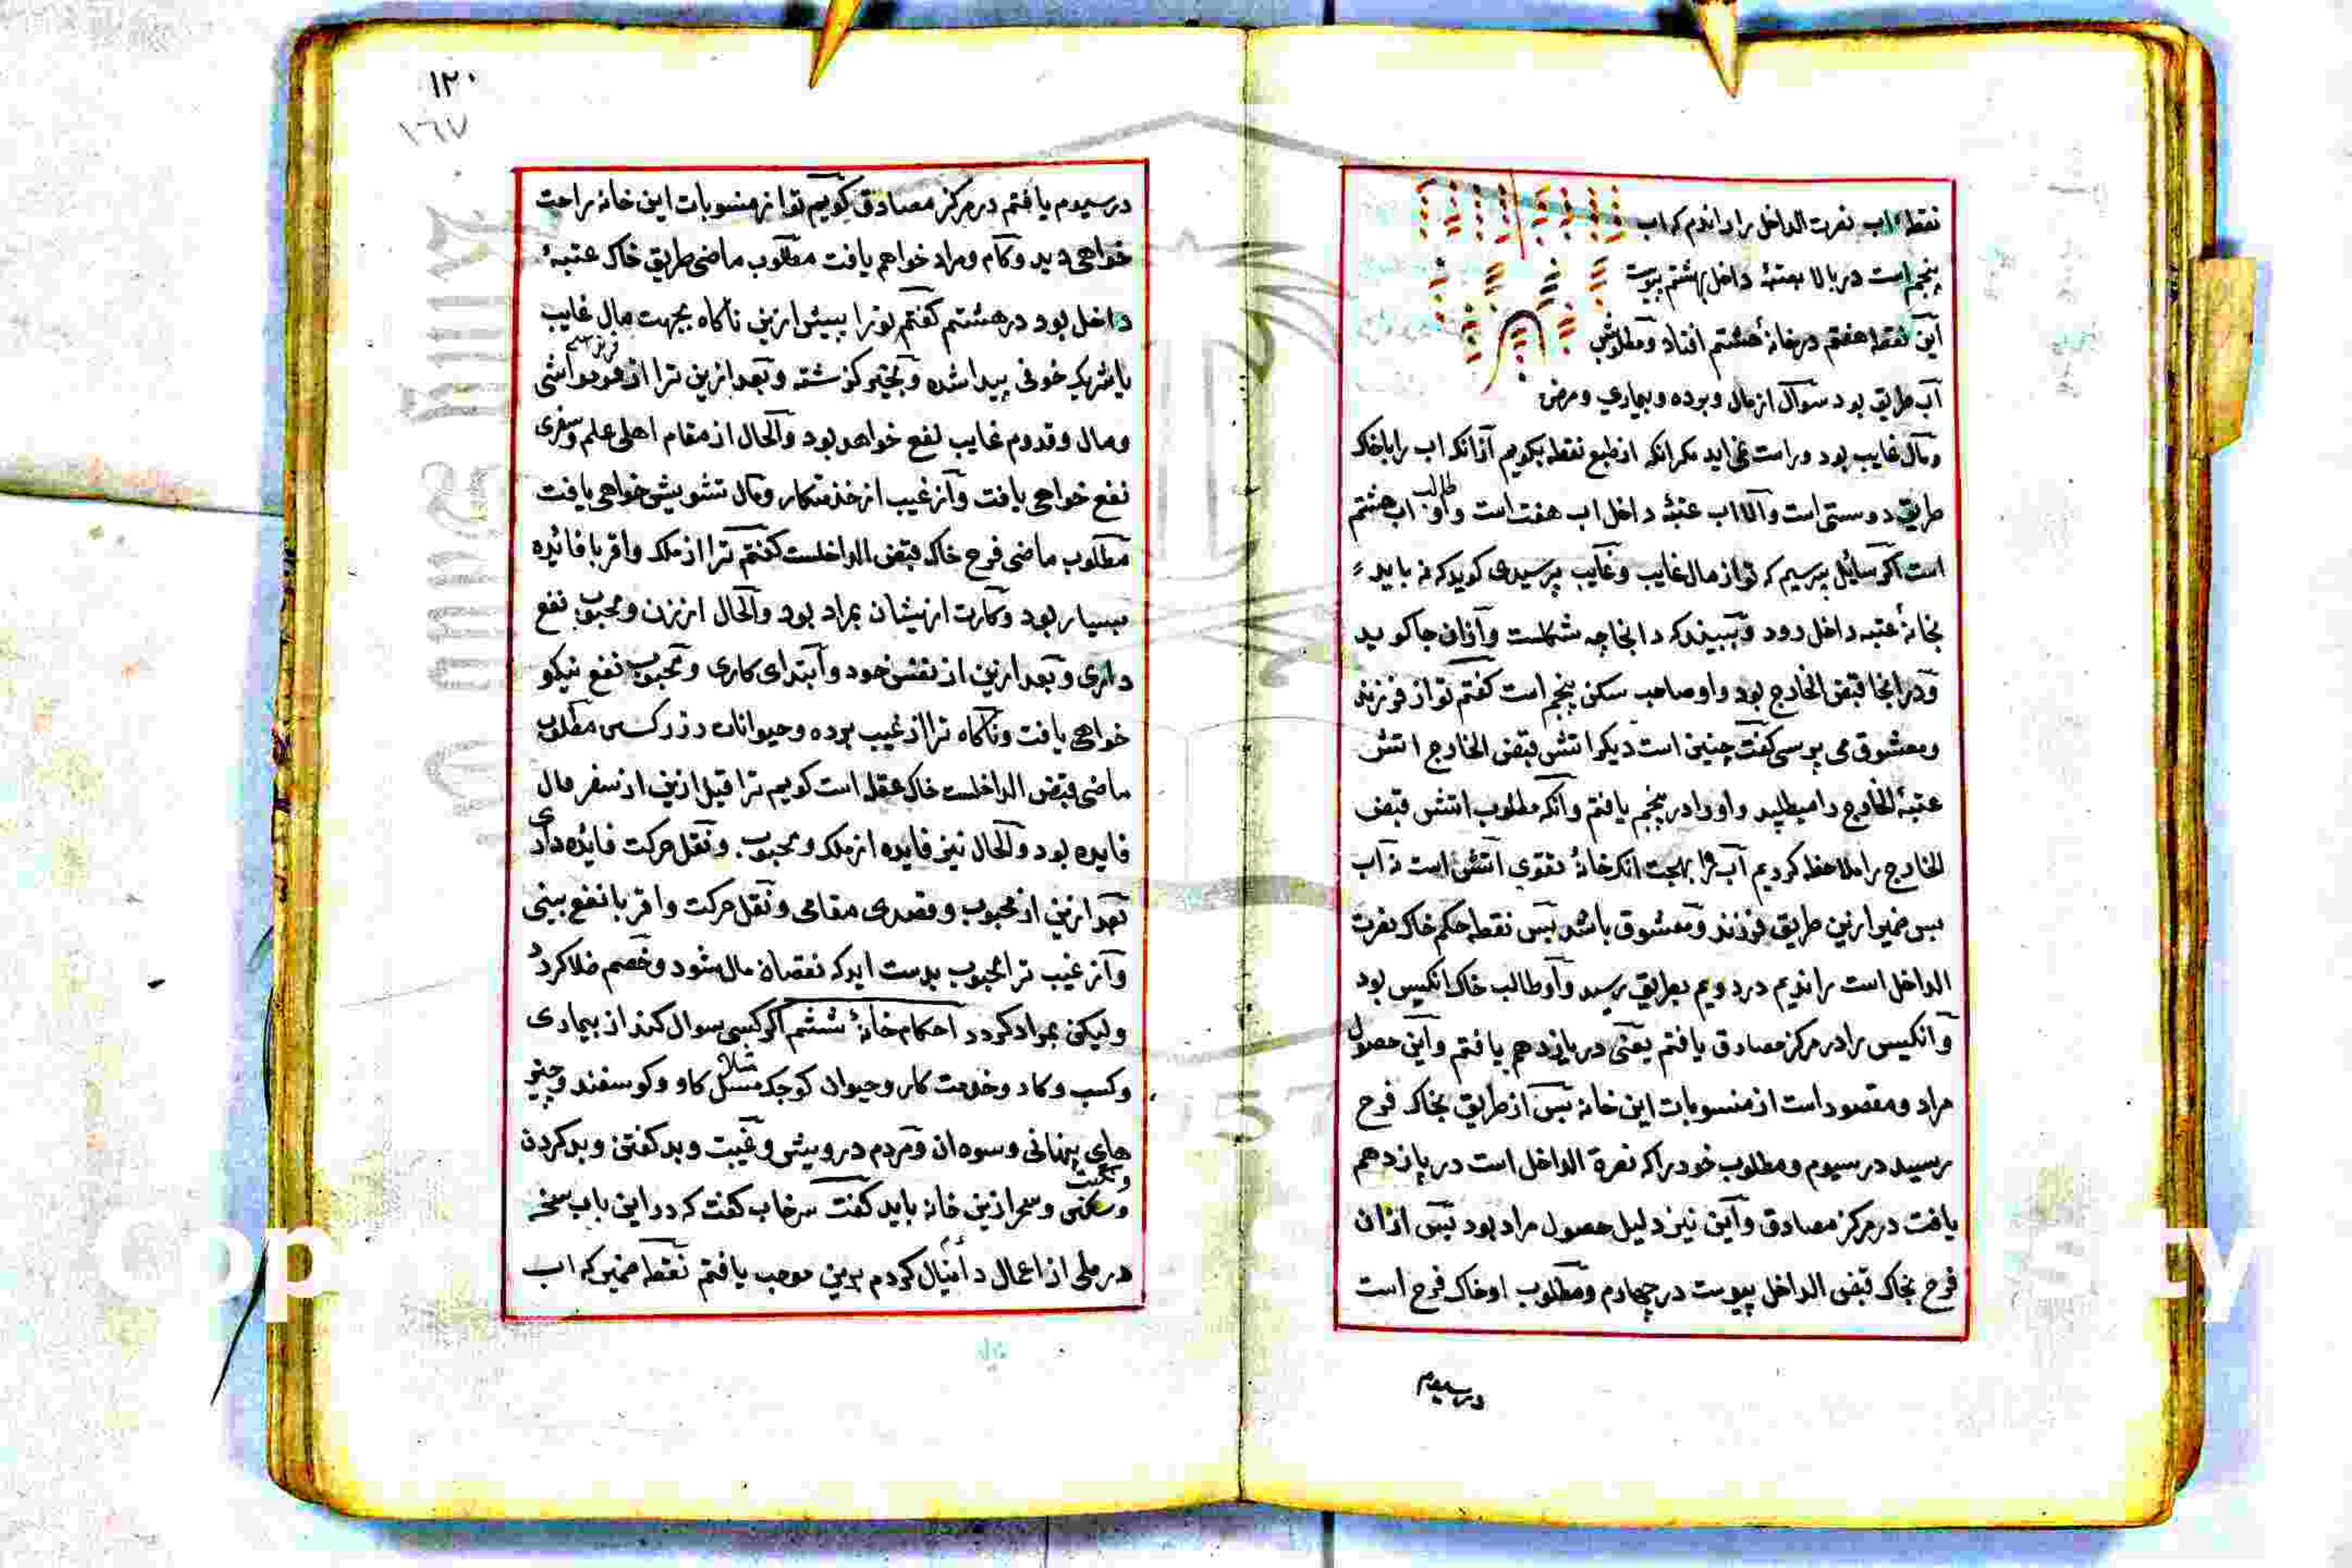 نقطهٔ اب نصرت الداخل را راندیم که اب
پنجم است در بالا بعتبهٔ داخل بهشتم پیوست
این نقطه هفتم در خانهٔ هشتم افتاد و مطلوبش
آب طریق بود سوال از مال و برده و بیماری و مرض
و مال غایب بود و راست نمی اید مکر انکه از طبع نقطه بکویم آزانکه اب را باخاک
طریق دوستی است و الا اب عتبهٔ داخل اب هفت است و او طالب اب هشتم
است اکر سایل بپرسیم که تو از مال غایب و غایب پرسیدی کوید که نه باید
بخانهٔ عتبه داخل رود و ببیند که دانجا چه شکلست و آزان جا کوید
و در انجا قبض الخارج بود و او صاحب سکن پنجم است کفتم تو از فرزند
و معشوق می پرسی کفت چنین است دیکر اتش قبض الخارج اتش
عتبهٔ الخارج را میطلبد و او را در پنجم یافتم وانکه مطلوب اتش قبض
الخارج را ملاحظه کردیم آب را بهجت انکه خانهٔ تقوی آتش است نه آب
پس ضمیر ازین طریق فرزند و معشوق باشد پس نقطه حکم خاک نصرت
الداخل است راندیم در دویم بطریق رسید و او طالب خاک انکیس بود
و انکیس را در مرکز مصادق یافتم یعنی در یازدهم یافتم و این حصول
مراد و مقصود است از منسوبات این خانه پس از طریق بخاک فرح
رسید در سیوم و مطلوب خود را که نصرة الداخل است در یازدهم
یافت در مرکز مصادق و این نیز دلیل حصول مراد بود پس ازان
فرح بخاک قبض الداخل پیوست در چهارم و مطلوب او خاک فرح است
در سیوم
١٢٠
١٦٧
در سیوم یافتم در مرکز مصادق کویم تو از منسوبات این خانه راحت
خواهی دید و کام و مراد خواهم یافت مطلوب ماضی طریق خاک عتبهٔ
داخل بود در هشتم کفتم تو را بیش ازین ناکاه بجهت مال غایب
یا شریک خوفی پیدا شده و بخیر کزشته و بعد ازین ترا از
و مال و قدوم غایب نفع خواهد بود و الحال از مقام اهلی علم و سفری
نفع خواهی یافت و از غیب از خذمتکار و مال تشویش خواهی یافت
مطلوب ماضی فرح خاک قبض الداخلست کفتم ترا از ملک و اقربا فائده
بسیار بود و کارت ازیشان بمراد بود و الحال از زن و محبوب نفع
داری و بعد ازین از نفس خود و ابتدای کاری و محبوب نفع نیکو
خواهی یافت و ناکاه ترا از غیب برده و حیوانات در رکسی مطلوب
ماضی قبض الداخلست خاک عقله است کویم ترا قبل ازین از سفر مال
فایده بود و الحال نیز فایده از ملک و محبوب و نقل حرکت فائده داری
بعد ازین از محبوب و قصدی مقامی و نقل حرکت و اقربا نفع بینی
و از غیب ترا محبوب بدست اید که نقصان مال شود و خصم کردد
و لیکن بمراد کردد احکام خانهٔ ششم اکر کسی سوال کند از بیماری
و کسب و کار و خدمت کار و حیوان کوچک مثلا کاو و کوسفند و چیز
های پنهانی و سوهان و مردم درویش و غیبت و بد کفتن و بد کردن
و سحر ازین خانه باید کفت سرخاب کفت که در این باب سخه
در ملی از اعمال دانیال کردم برین موجب یافتم نقطه ضمیر که اب